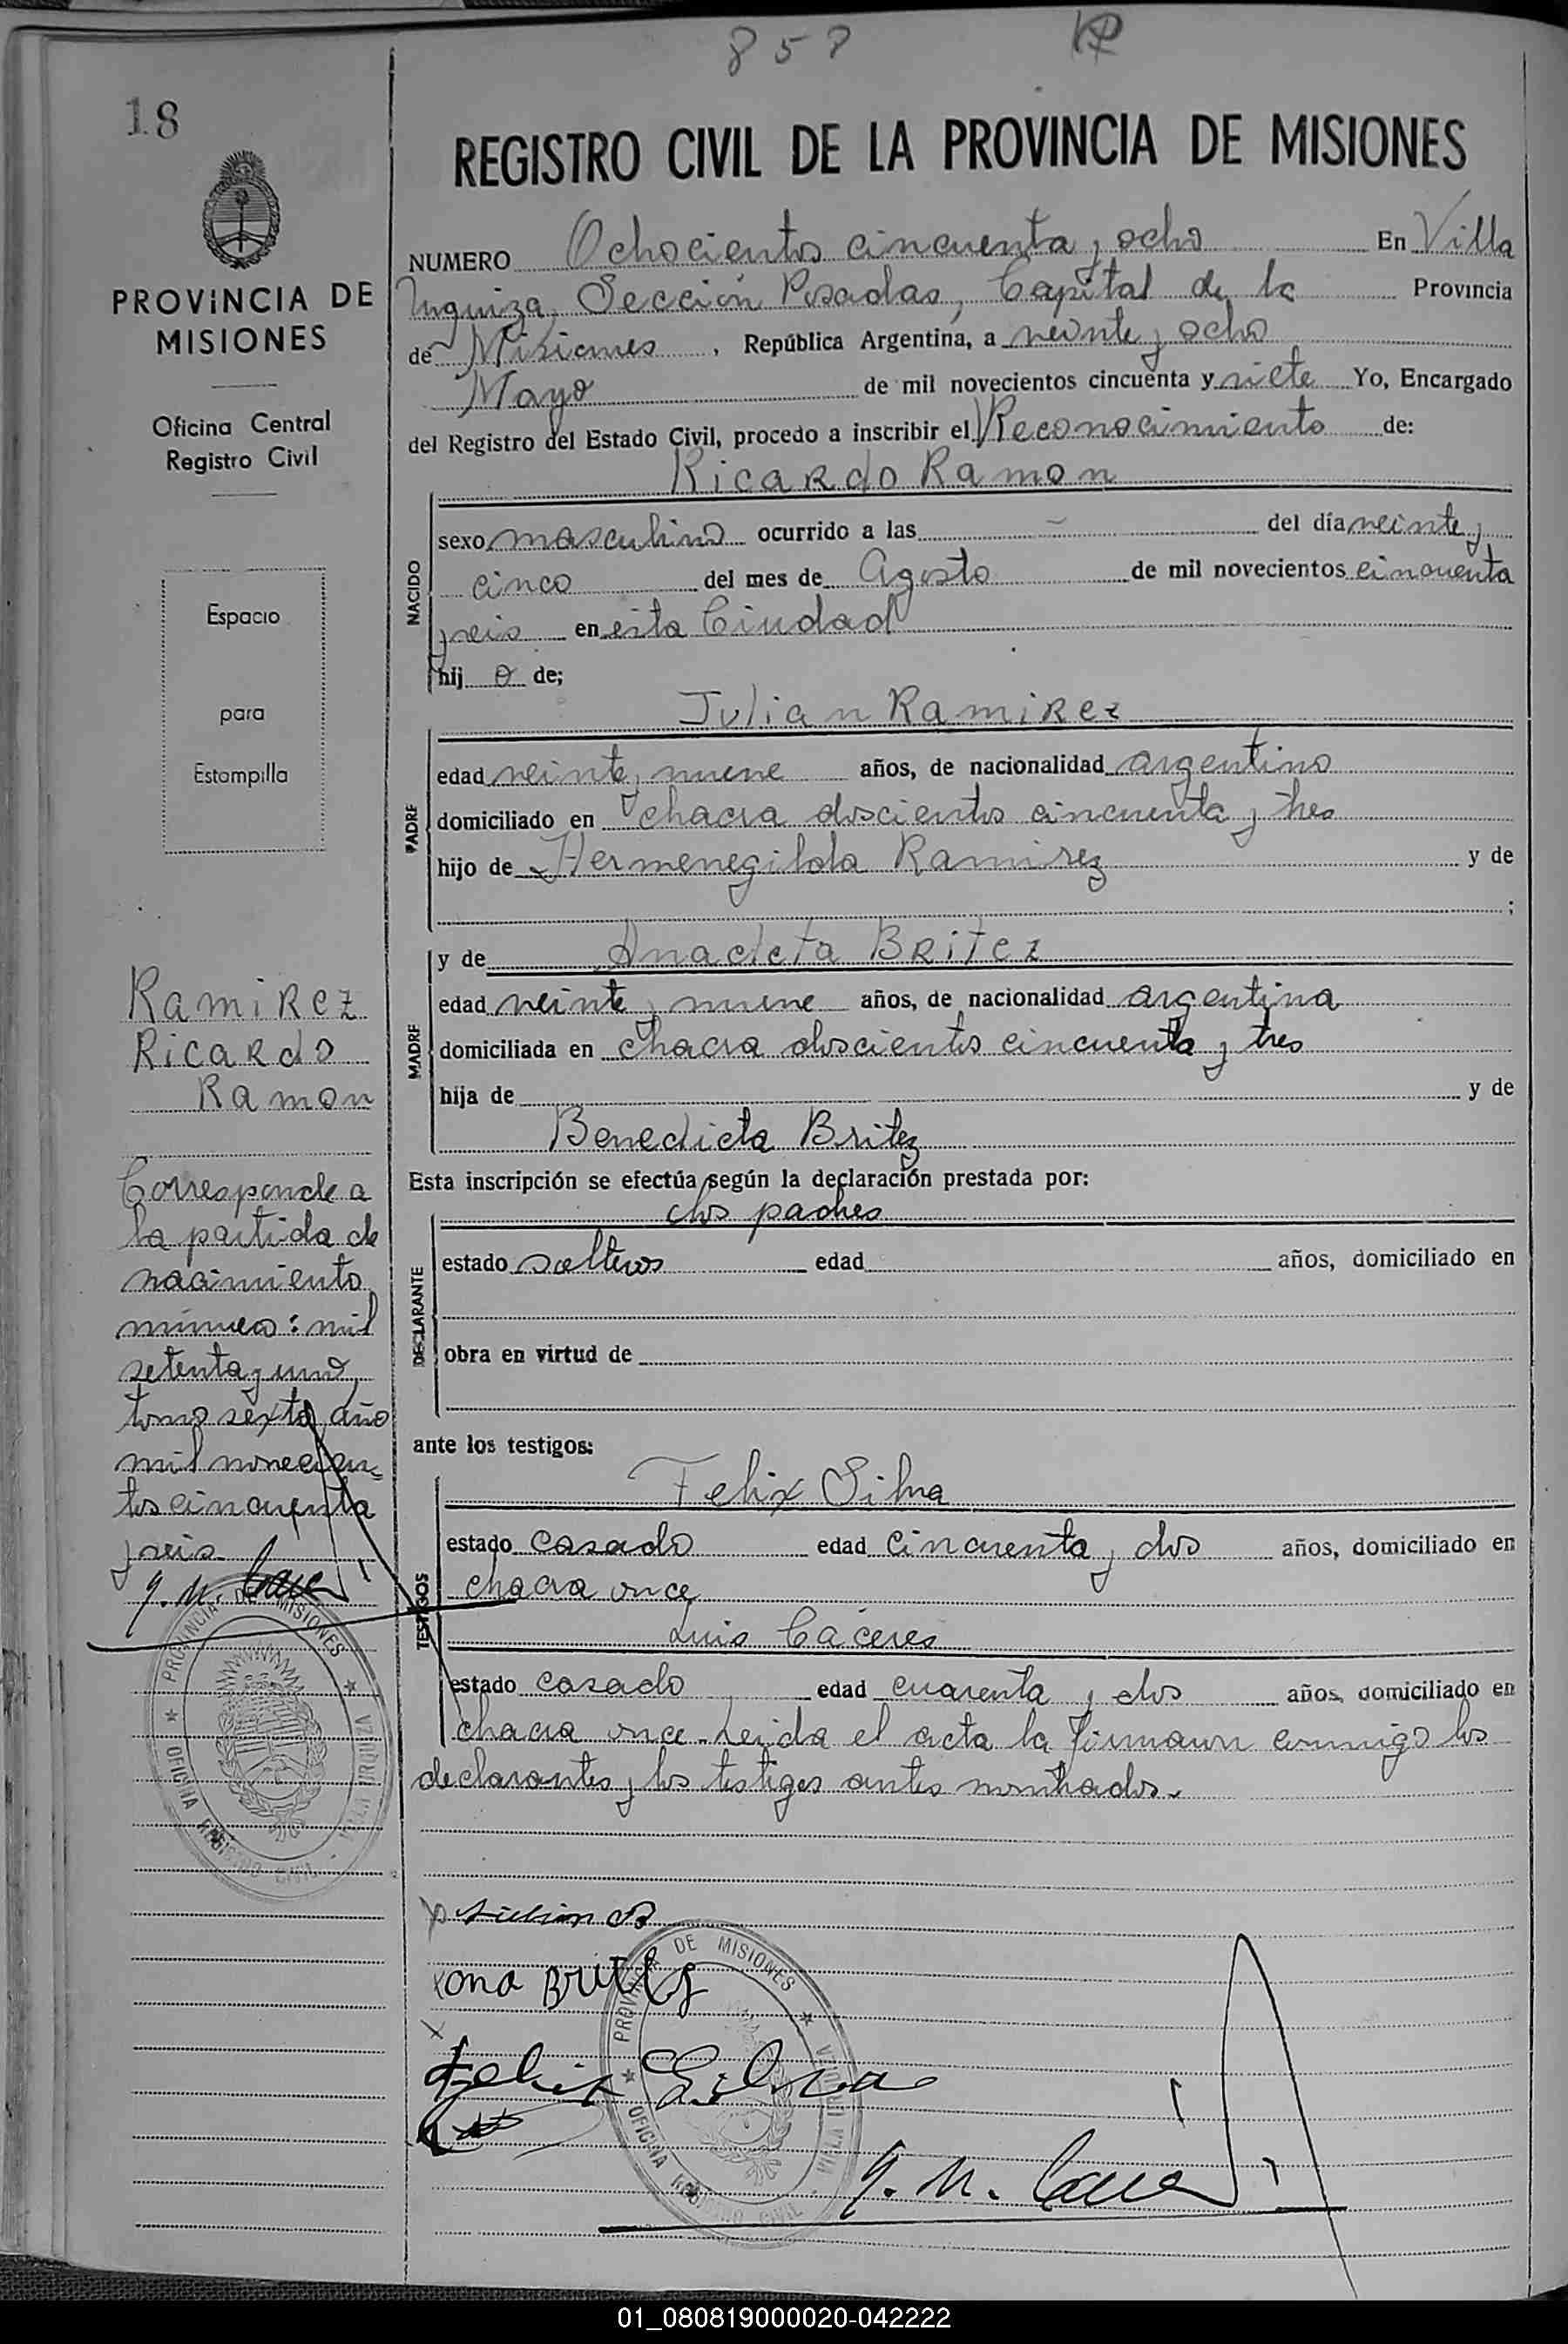 858
18
REGISTRO CIVIL DE LA PROVINCIA DE MISIONES
PROVINCIA DE
MISIONES
Oficina Central
Registro Civil
Espacio
para
Estampilla
NUMERO Ochocientos cincuenta y ocho En Villa
Urquiza, Sección Posadas, Capital de la Provincia
de Misiones, República Argentina, a veinte y ocho
Mayo de mil novecientos cincuenta y siete Yo, Encargado
del Registro del Estado Civil, procedo a inscribir el Reconocimiento de:
Ricardo Ramon
NACIDO
sexo masculino ocurrido a las - del día veinte y
cinco del mes de Agosto de mil novecientos cincuenta
y seis en esta Ciudad
hijo de;
Julian Ramirez
PADRE
edad veinte y nueve años, de nacionalidad argentino
domiciliado en chacra doscientos cincuenta y tres
hijo de Hermenegilda Ramirez y de
;
y de Anacleta Britez
MADRE
edad veinte y nueve años, de nacionalidad argentina
domiciliada en chacra doscientos cincuenta y tres
hija de y de
Benedicta Britez
Esta inscripción se efectúa según la declaración prestada por:
los padres
DECLARANTE
estado solteros edad años, domiciliado en
obra en virtud de
ante los testigos:
Felix Silva
TESTIGOS
estado casado edad cincuenta y dos años, domiciliado en
chacra once
Luis Cáceres
estado casado edad cuarenta y dos años, domiciliado en
chacra once. Leida el acta la firmaron conmigo los
declarantes y los testigos antes nombrados.
Ramirez
Ricardo
Ramon
Corresponde a
la partida de
nacimiento
número: mil
setenta y uno,
tomo sexto, año
mil novecien-
tos cincuenta
y seis.
PROVINCIA DE MISIONES
OFICINA REGISTRO CIVIL - VILLA URQUIZA
ana Britez
Felix Silva
PROVINCIA DE MISIONES
OFICINA REGISTRO CIVIL - VILLA URQUIZA
01_080819000020-042222